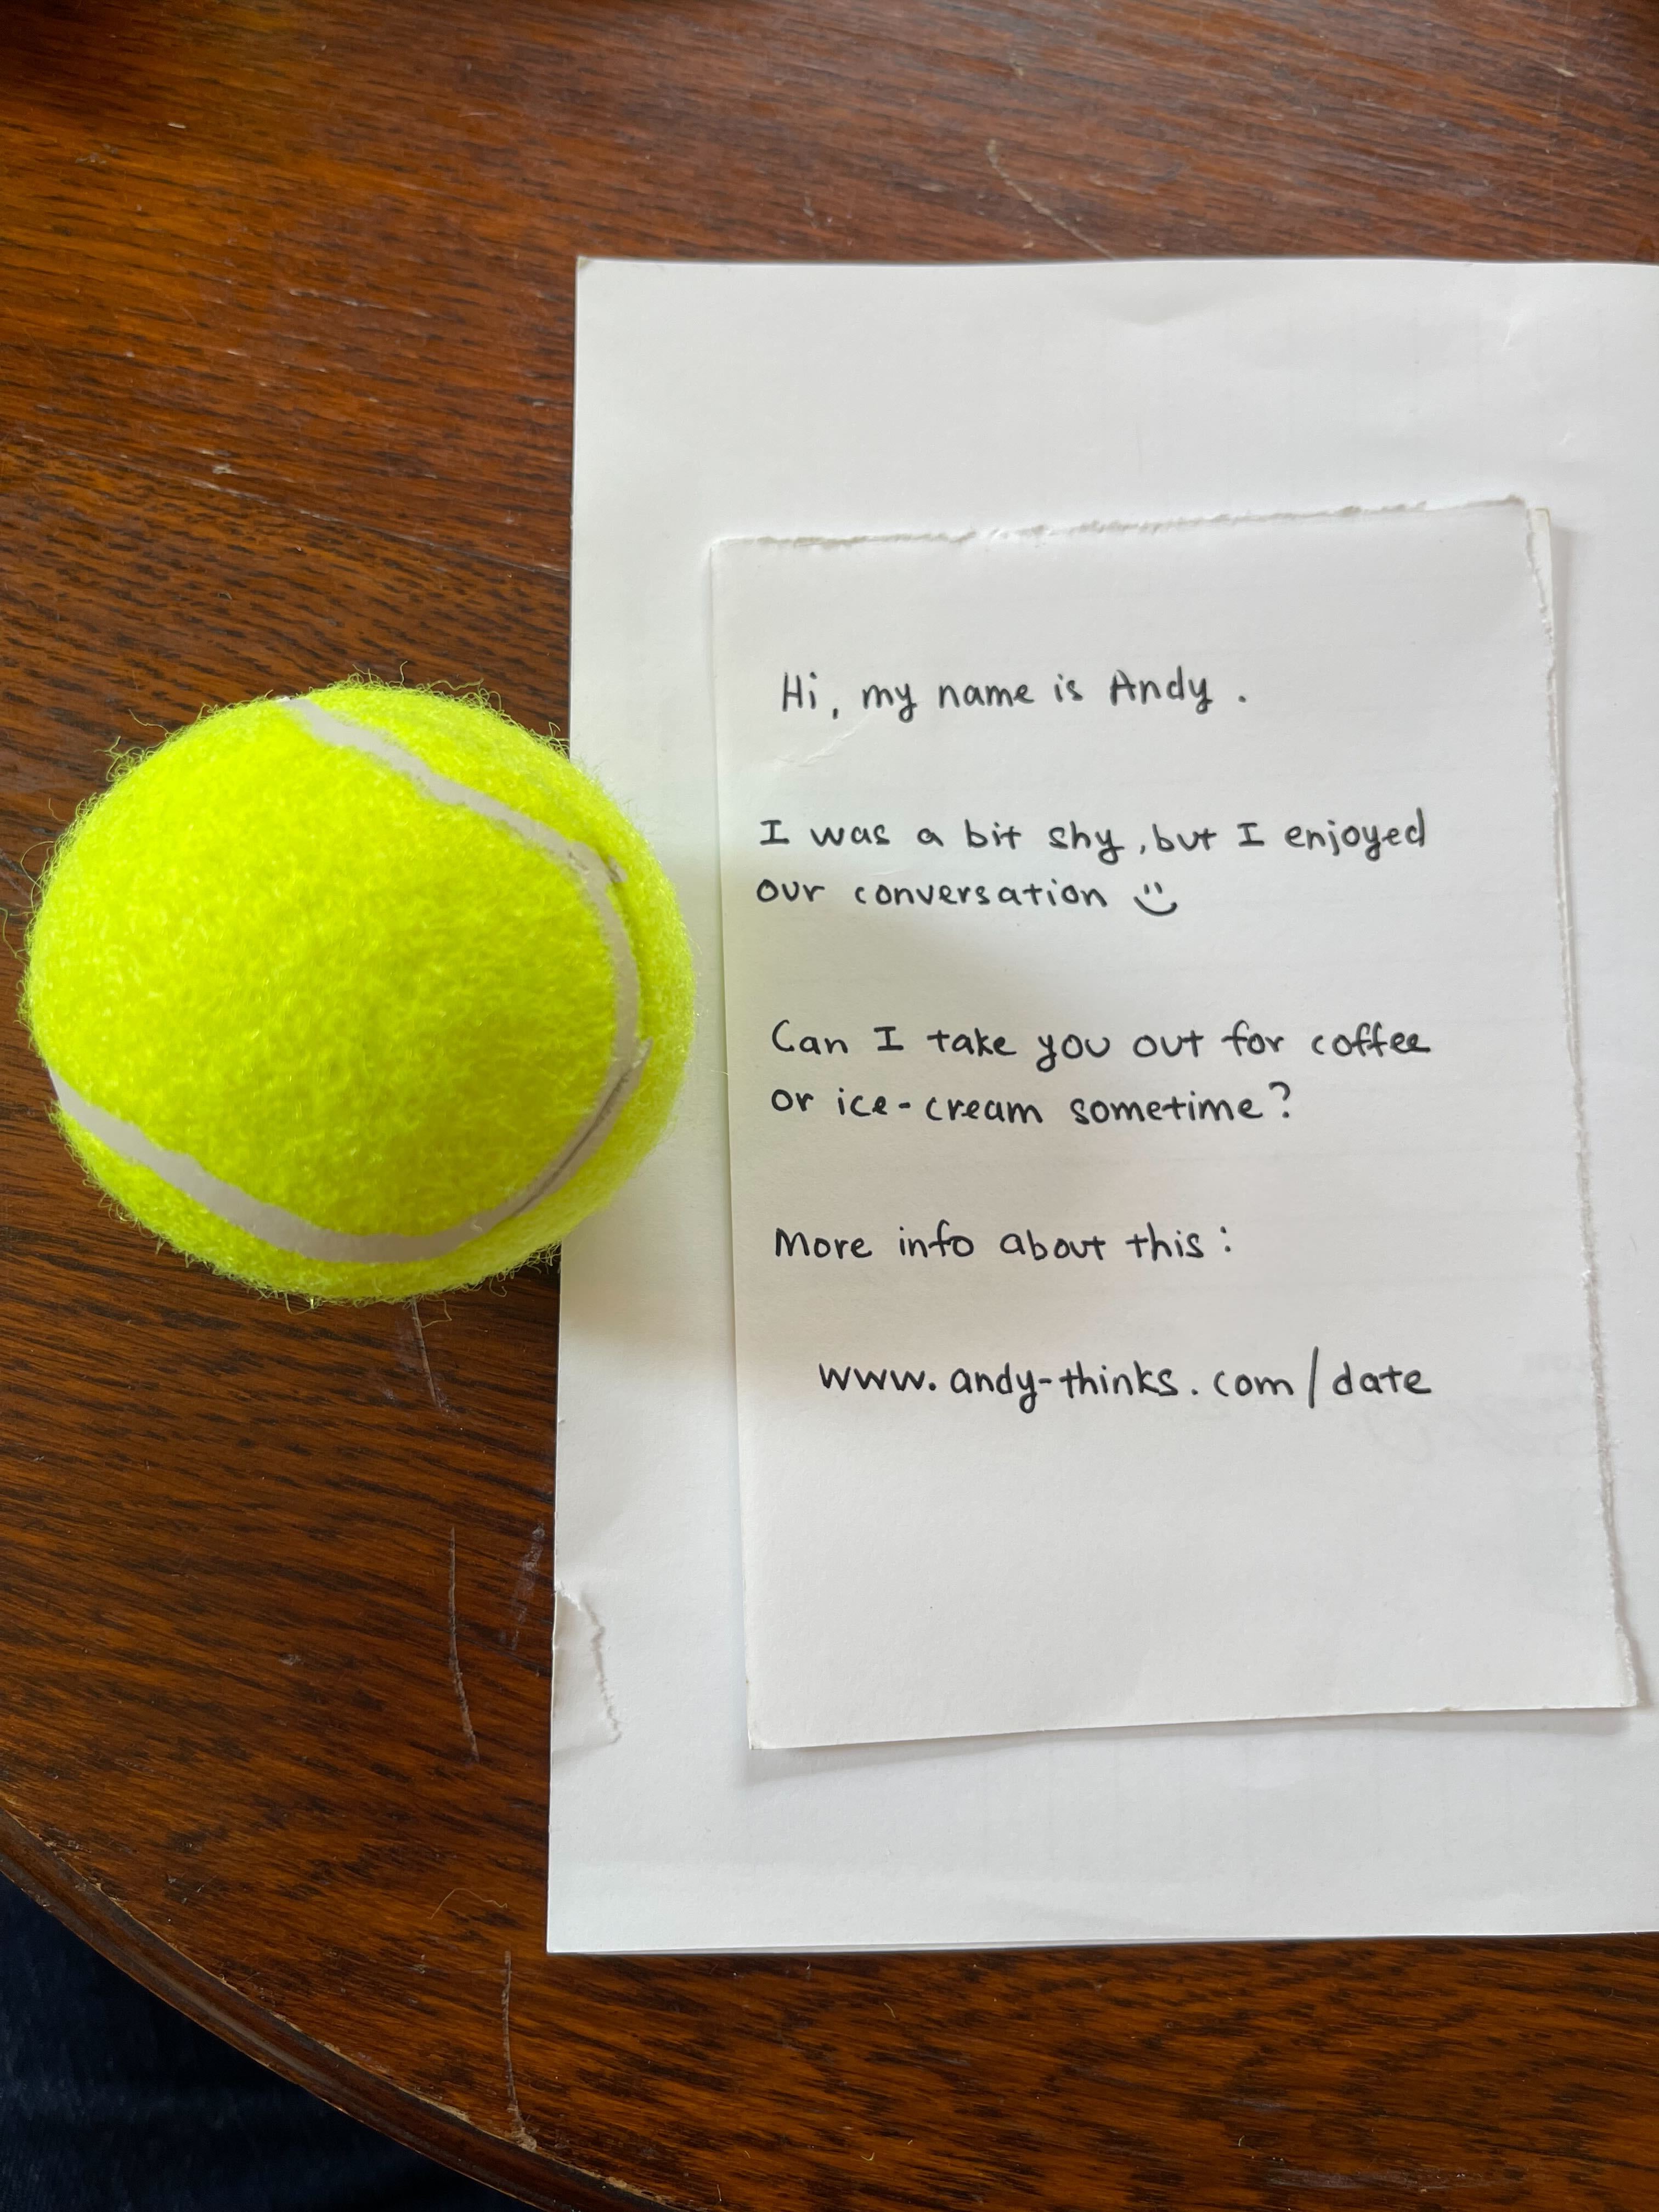 Hi, my name is Andy.
I was a bit shy, but I enjoyed
our conversation
Can I take you out for coffee
or ice-cream sometime?
More info about this:
www.andy-thinks.com/date